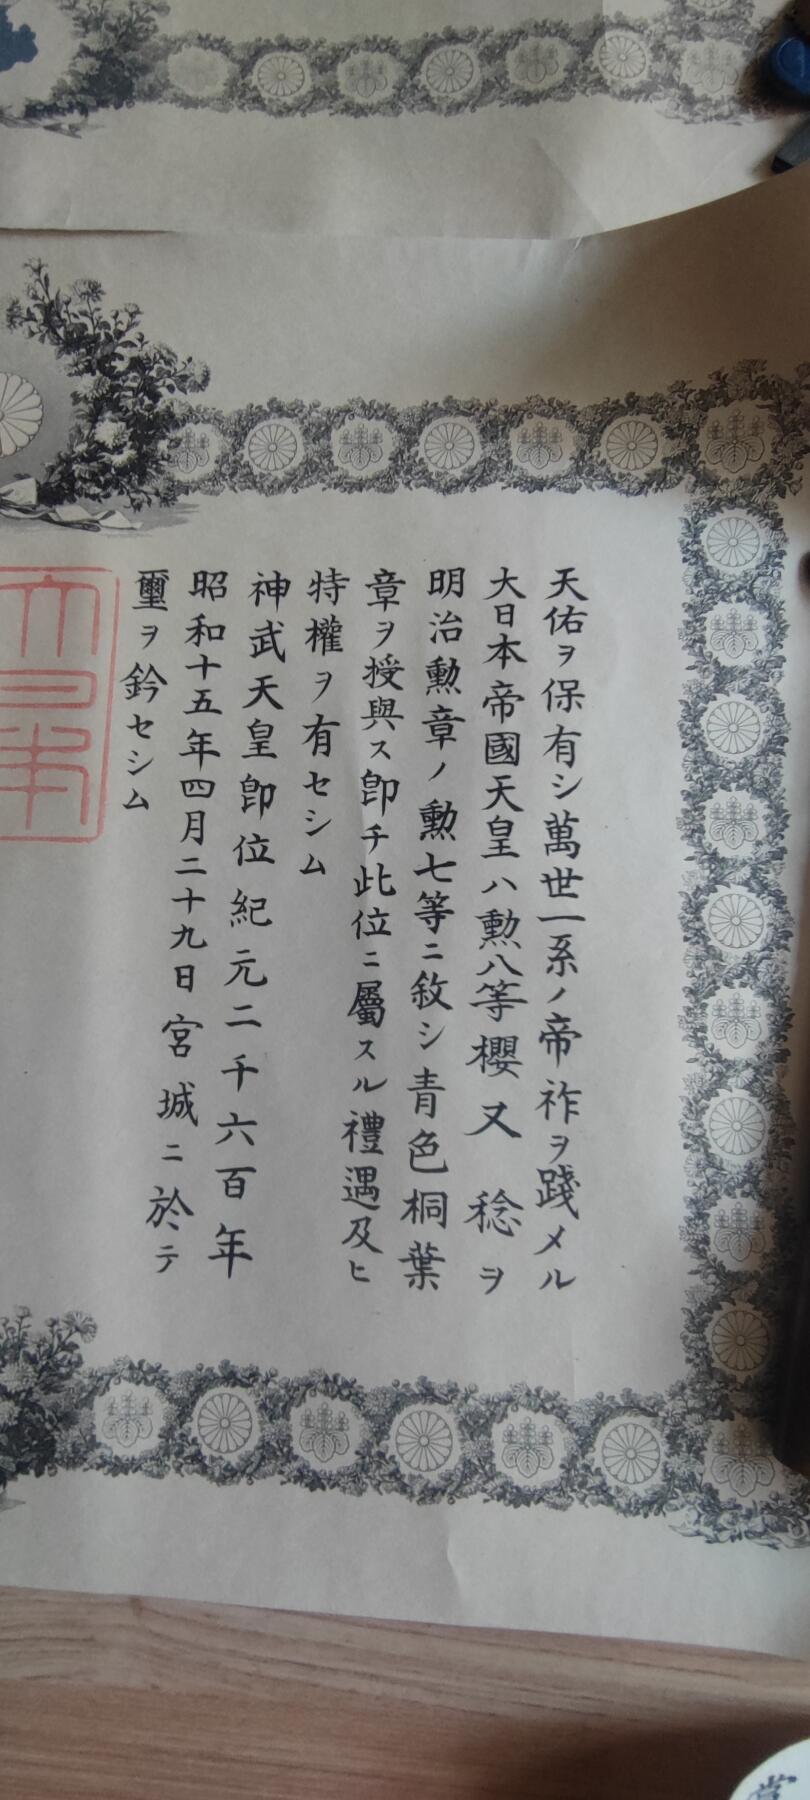 天佑ヲ保有シ萬世一系ノ帝祚ヲ踐メル
大日本帝國天皇ハ勲八等櫻又稔ヲ
明治勲章ノ勲七等ニ敘シ青色桐葉
章ヲ授與ス卽チ此位ニ屬スル禮遇及ヒ
特權ヲ有セシム
神武天皇卽位紀元二千六百年
昭和十五年四月二十九日宮城ニ於テ
璽ヲ鈐セシム